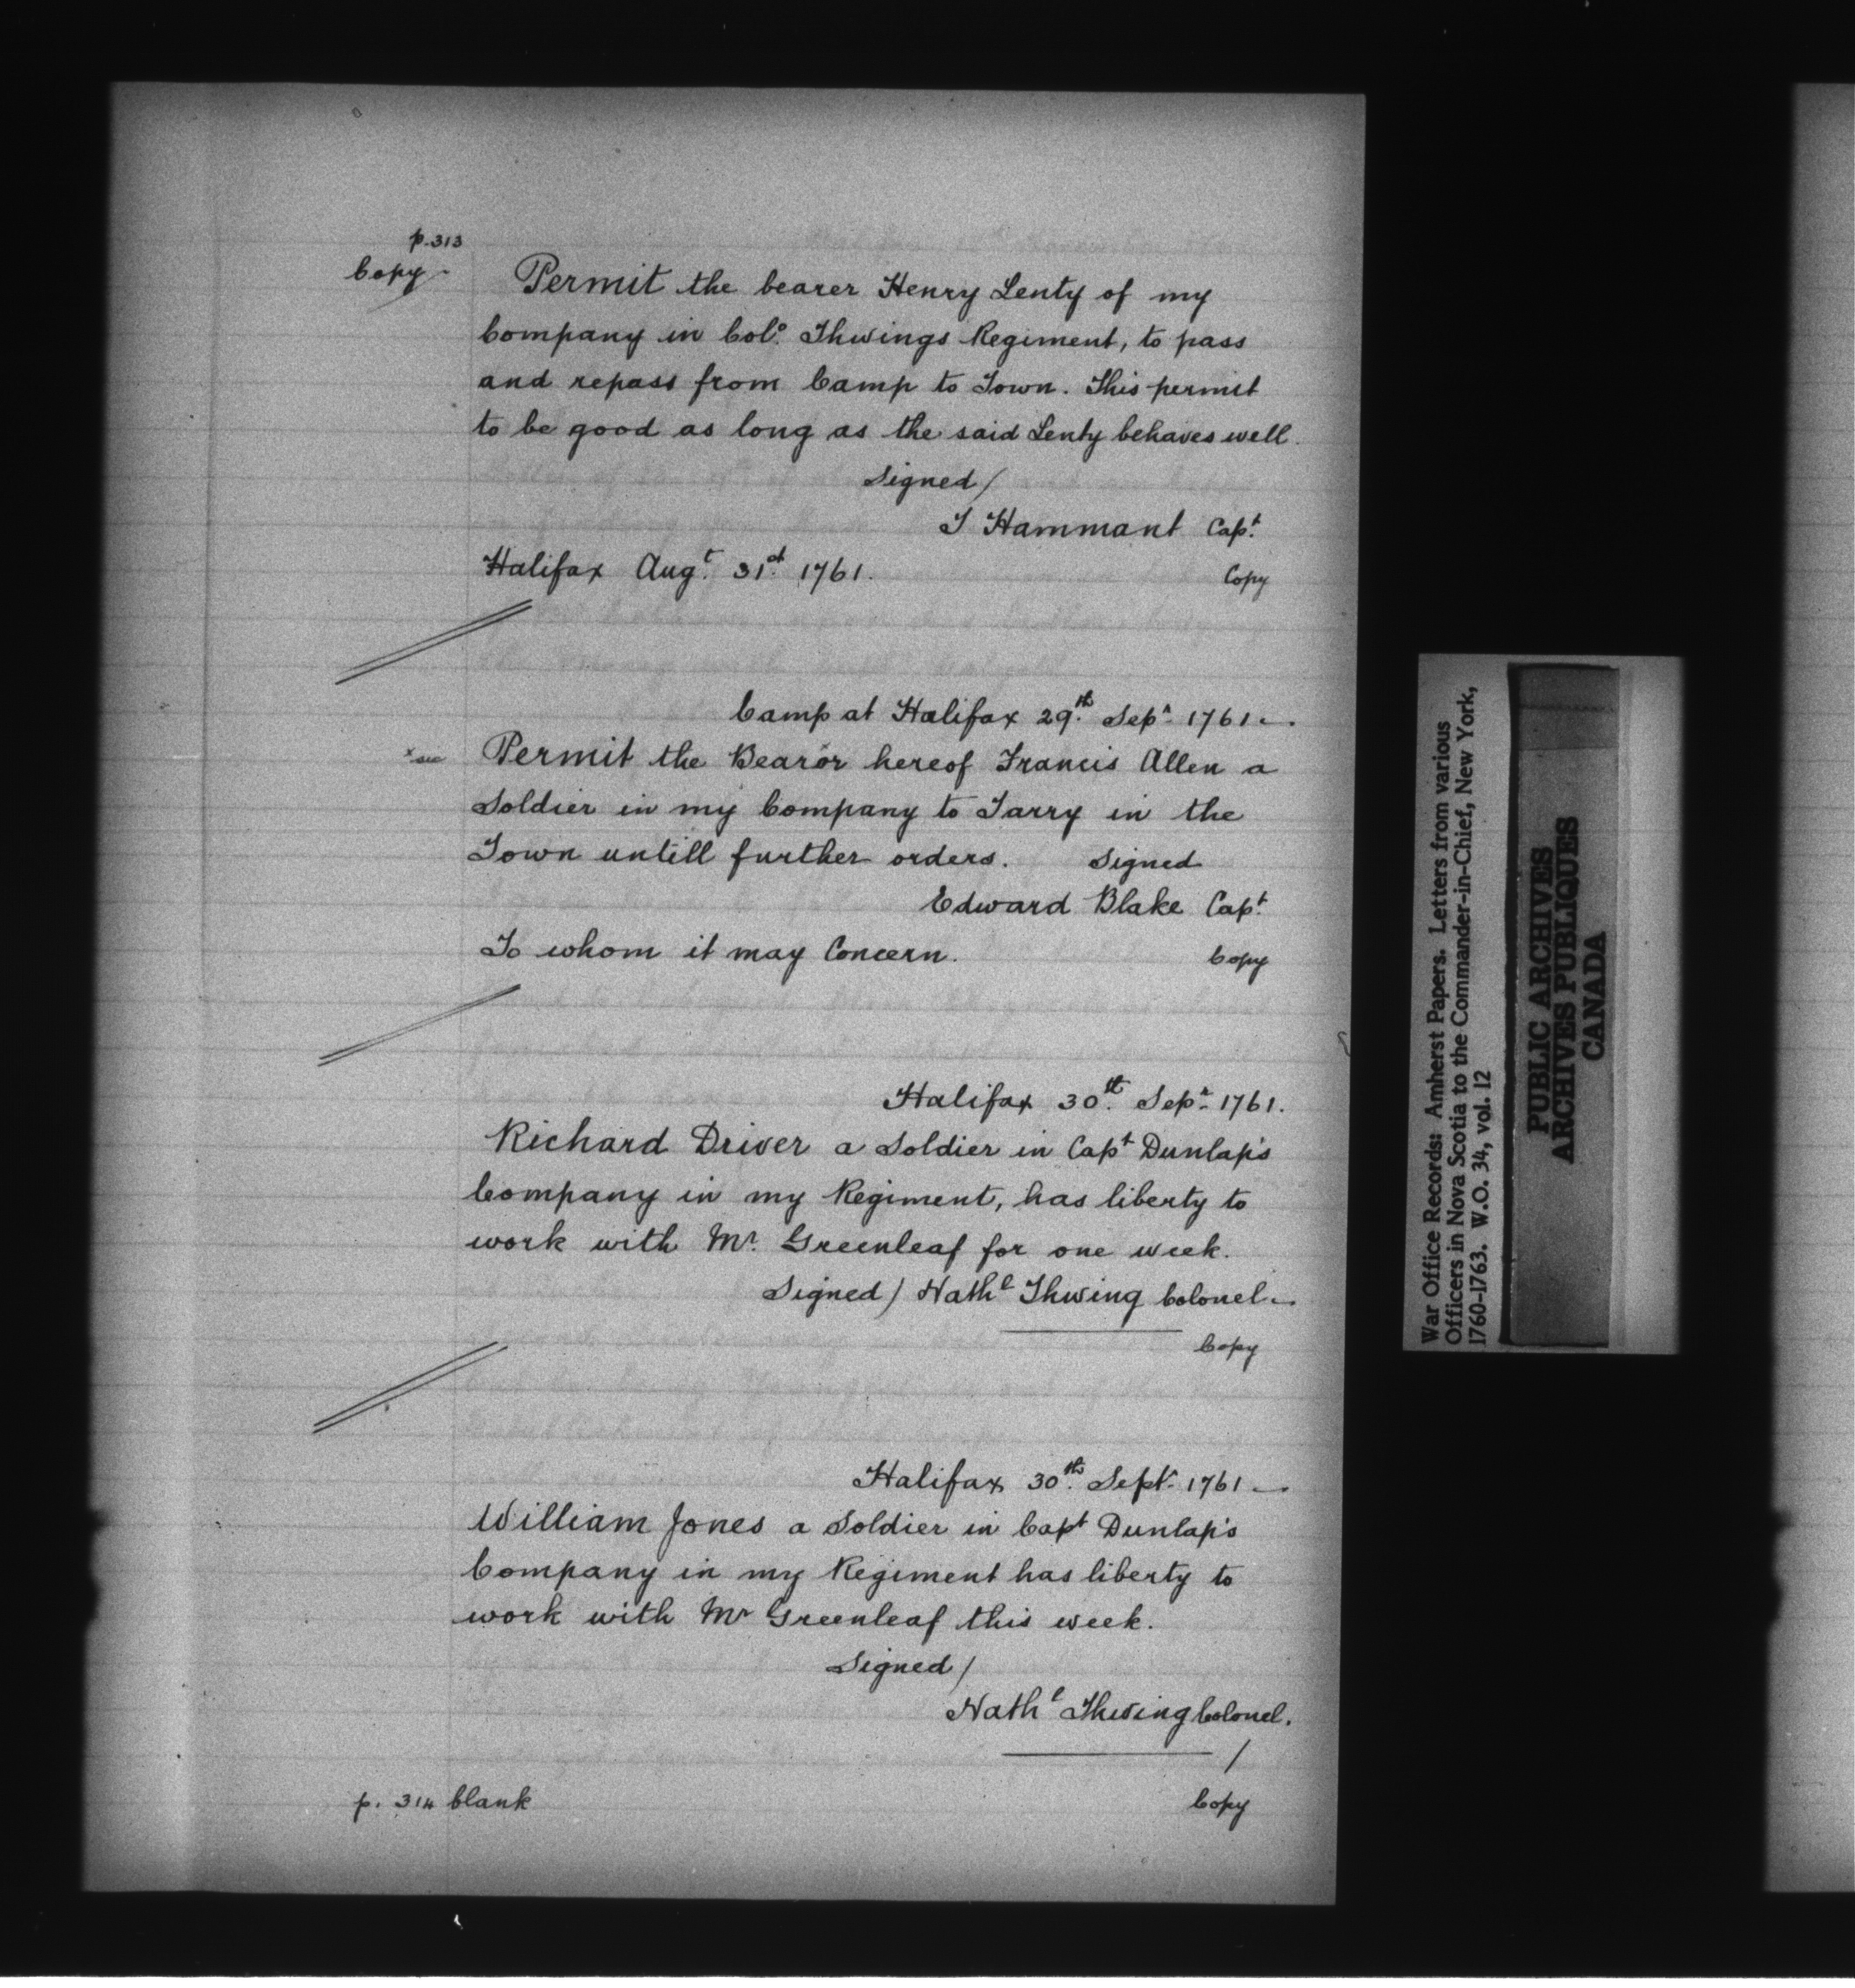 p. 313
Copy -
Permit the bearer Henry Lenty of my
Company in Colº. Thwings Regiment, to pass
and repass from Camp to Town. This permit
to be good as long as the said Lenty behaves well.
Signed /
T Hammant Capᵗ.
Halifax Augᵗ. 31ˢᵗ. 1761.
Copy
Camp at Halifax 29ᵗʰ. Sepʳ. 1761.
x sic
Permit the Bearor hereof Francis Allen a
Soldier in my Company to Tarry in the
Town untill further orders. Signed
Edward Blake Capᵗ.
To whom it may Concern.
Copy
Halifax 30ᵗʰ. Sepʳ. 1761.
Richard Driver a Soldier in Capᵗ Dunlap's
Company in my Regiment, has liberty to
work with Mʳ. Greenleaf for one week.
Signed / Nathˡ Thwing Colonel.
Copy
Halifax 30ᵗʰ. Septʳ. 1761
William Jones a Soldier in Capᵗ Dunlap's
Company in my Regiment has liberty to
work with Mʳ Greenleaf this week.
Signed /
Nathˡ Thwing Colonel.
/
p. 314 blank
Copy
War Office Records: Amherst Papers. Letters from various
Officers in Nova Scotia to the Commander-in-Chief, New York,
1760-1763. W.O. 34, vol. 12
PUBLIC ARCHIVES
ARCHIVES PUBLIQUES
CANADA